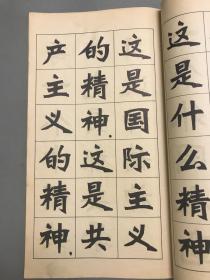 这是什么精神
这是国际主义
的精神，这是共
产主义的精神，